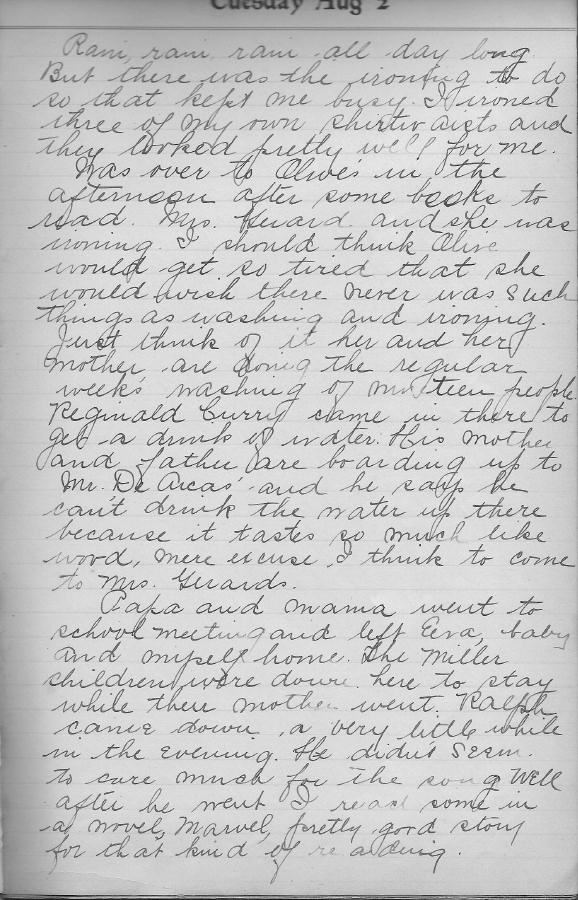 Tuesday Aug 2
Rain, rain, rain all day long.
But there was the ironing to do
so that kept me busy. I ironed
three of my own shirtwaists and
they looked pretty well for me.
Was over to Olive's in the
afternoon after some books to
read. Mrs. Gerard and she was
ironing. I should think Olive
would get so tired that she
would wish there never was such
things as washing and ironing.
Just think of it her and her
mother are doing the regular
week's washing of nineteen people.
Reginald Curry came in there to
get a drink of water. His mother
and father are boarding up to
Mr. De Arcas' and he says he
can't drink the water up there
because it tastes so much like
wood, mere excuse I think to come
to Mrs. Gerards.
Papa and mama went to
school meeting and left Eeva, baby
and myself home. The Miller
children were down here to stay
while their mother went. Ralph
came down a very little while
in the evening. He didn't seem
to care much for the song Well
after he went I read some in
a novel, Marvel, pretty good story
for that kind of reading.